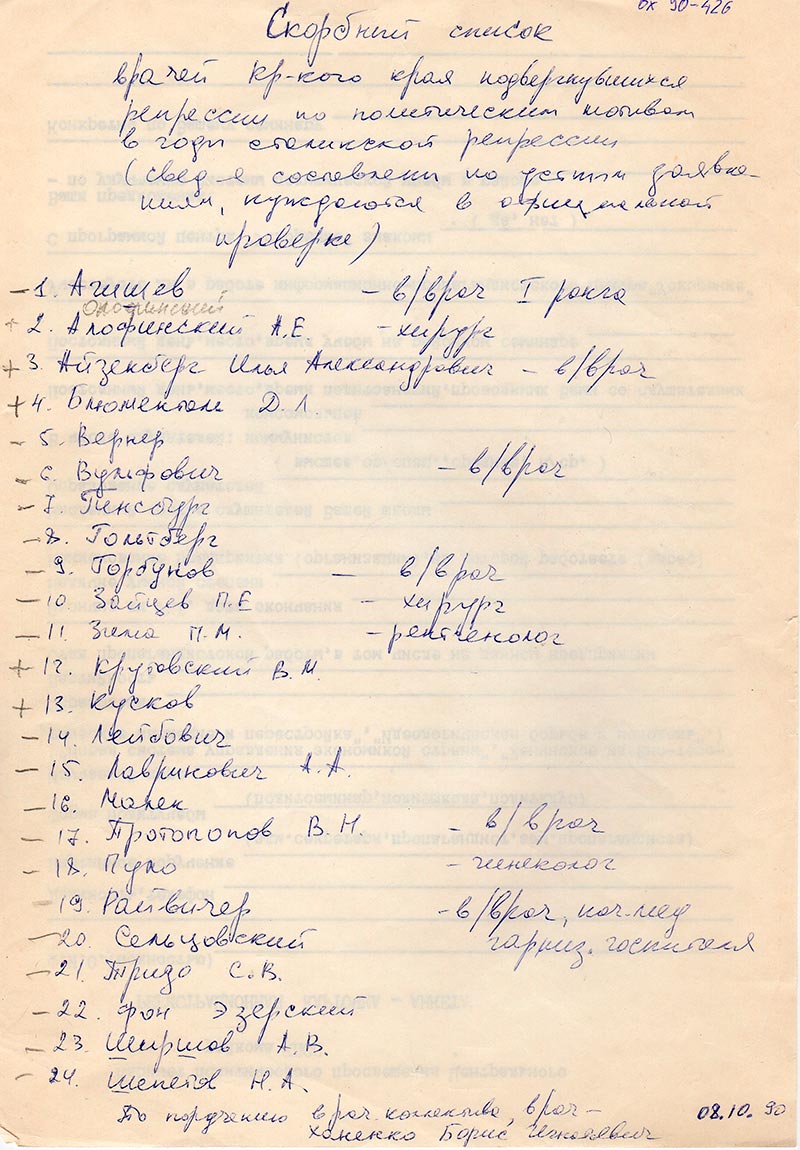 ОХ 90-426
Скорбный список
врачей Кр-кого края подвергнувшихся
репрессии по политическим мотивам
в годы сталинской репрессии
(свед-я составлены по устным заявле-
ниям, нуждаются в официальной
проверке)
– 1. Агишев – в/врач I ранга
Олофинский
+ 2. Алофинский А.Е – хирург
+ 3. Айзенберг Илья Александрович – в/врач
+ 4. Блюменталь Д.Л.
- 5. Вернер
- 6. Вульфович – в/врач
- 7. Гинсбург
- 8. Гольтберг
– 9. Горбунов – в/врач
– 10. Зайцев П.Е – хирург
– 11. Зима П.М. – рентгенолог
+ 12. Крутовский В.М.
+ 13. Кусков
– 14. Лейбович
– 15. Лаврикович А.А.
– 16. Малек
– 17. Протопопов В.Н. – в/врач
– 18. Пуло – гинеколог
– 19. Райвичер – в/врач, нач.мед
– 20. Сельцовский гарниз. госпиталя
– 21. Тридо С.В.
– 22. фон Эзерский
– 23. Ширшов А.В.
– 24. Шепетов Н.А.
По поручению врач. коллектива, врач – 08.10.90
Ханенко Борис Игнатьевич